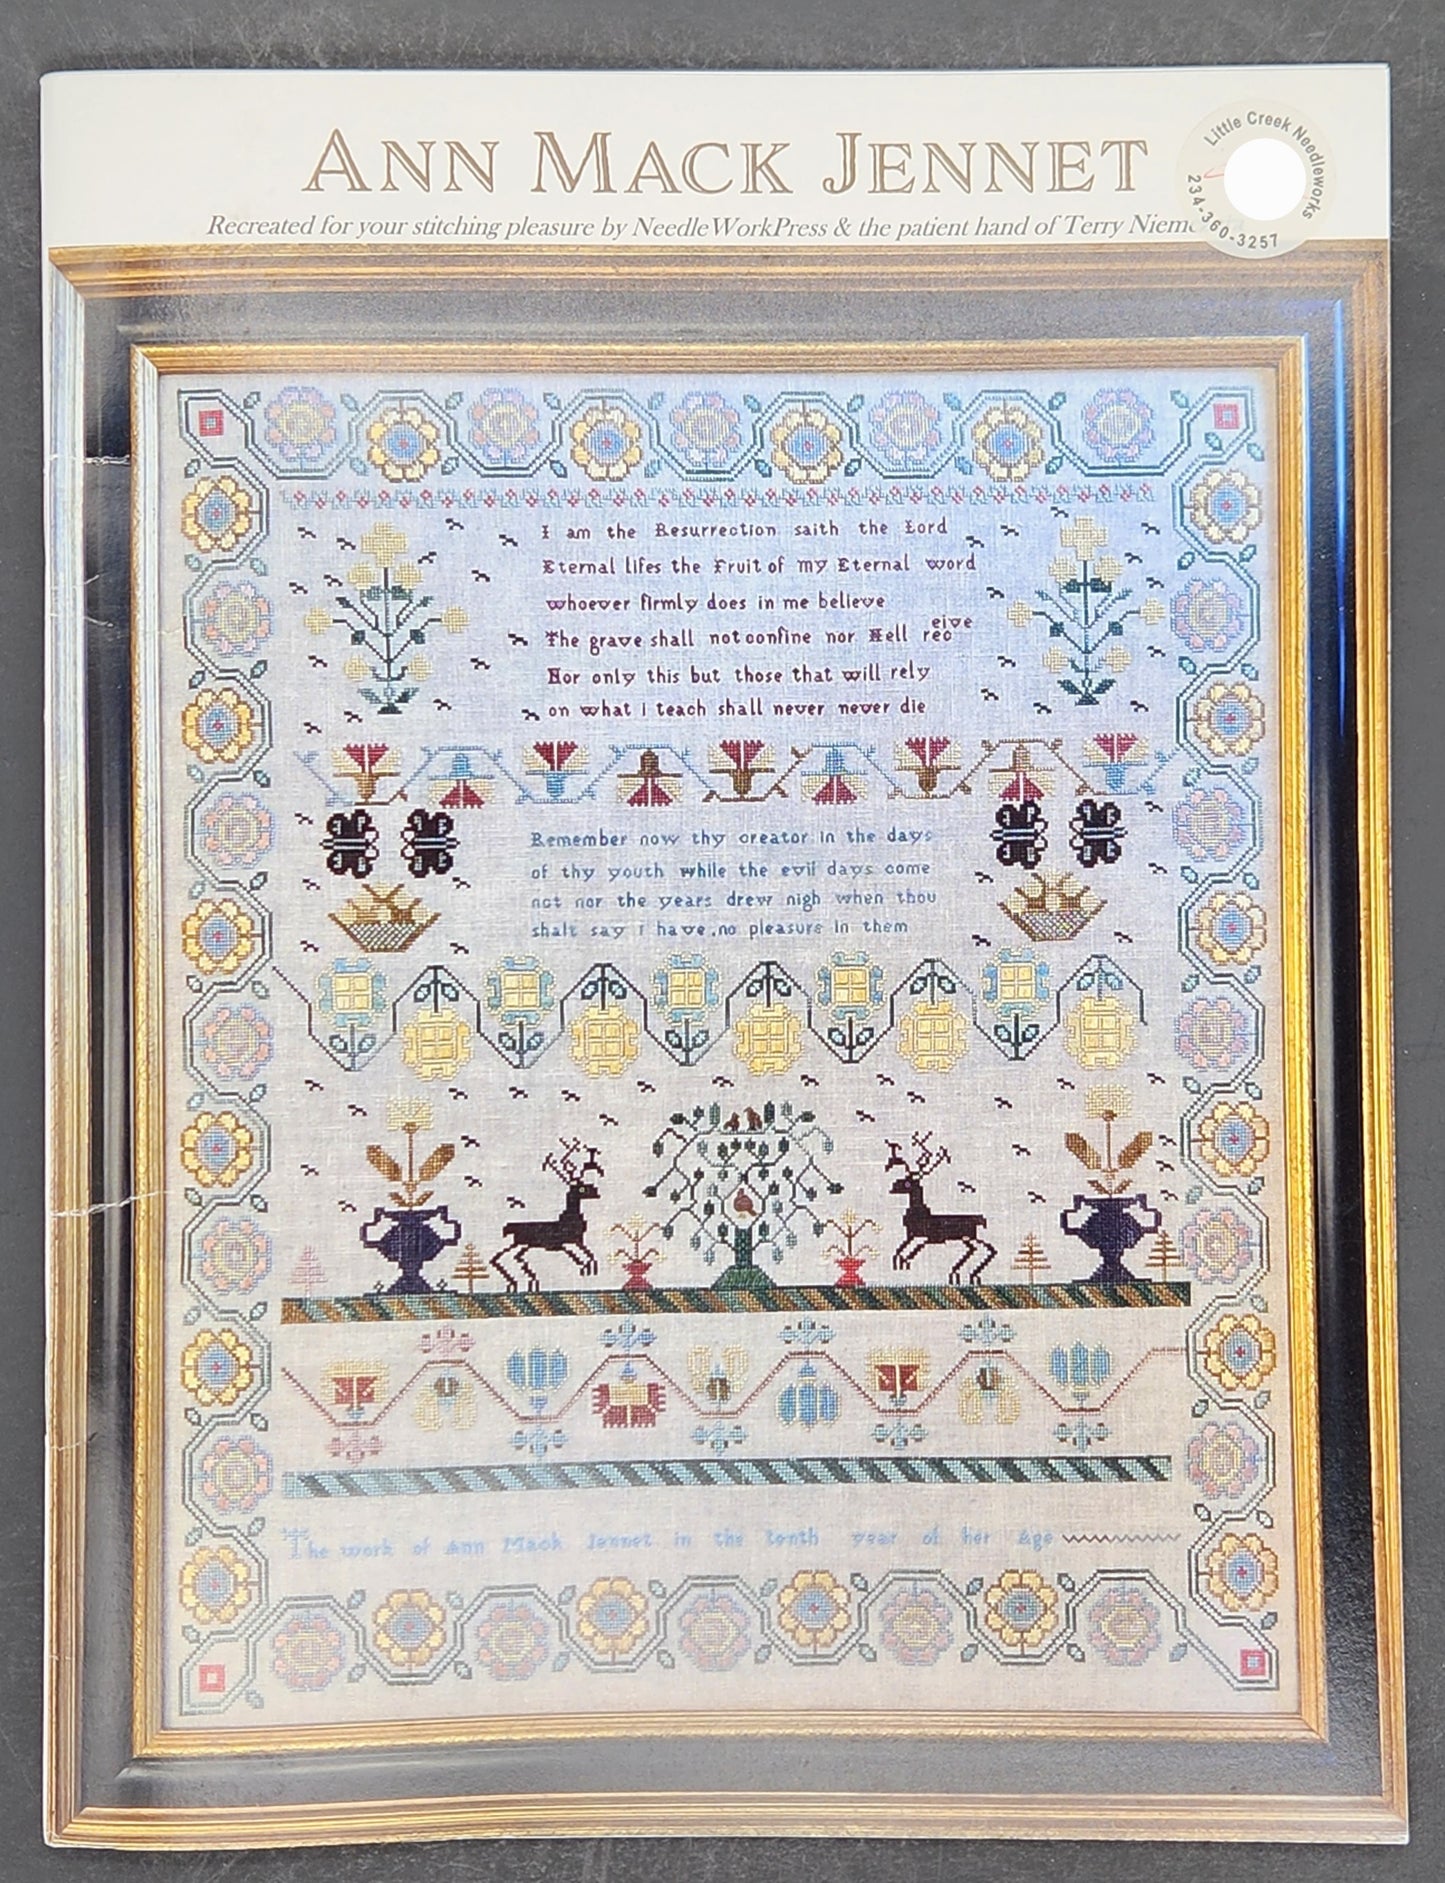 ANN MACK JENNET
Little Creek Needleworks
234-360-3257
Recreated for your stitching pleasure by NeedleWorkPress & the patient hand of Terry Niem
I am the Resurrection saith the Lord
Eternal lifes the Fruit of my Eternal word
whoever firmly does in me believe
The grave shall not confine nor Hell receive
Nor only this but those that will rely
on what I teach shall never never die
Remember now thy creator in the days
of thy youth while the evil days come
not nor the years drew nigh when thou
shalt say I have no pleasure in them
The work of Ann Mack Jennet in the tenth year of her Age